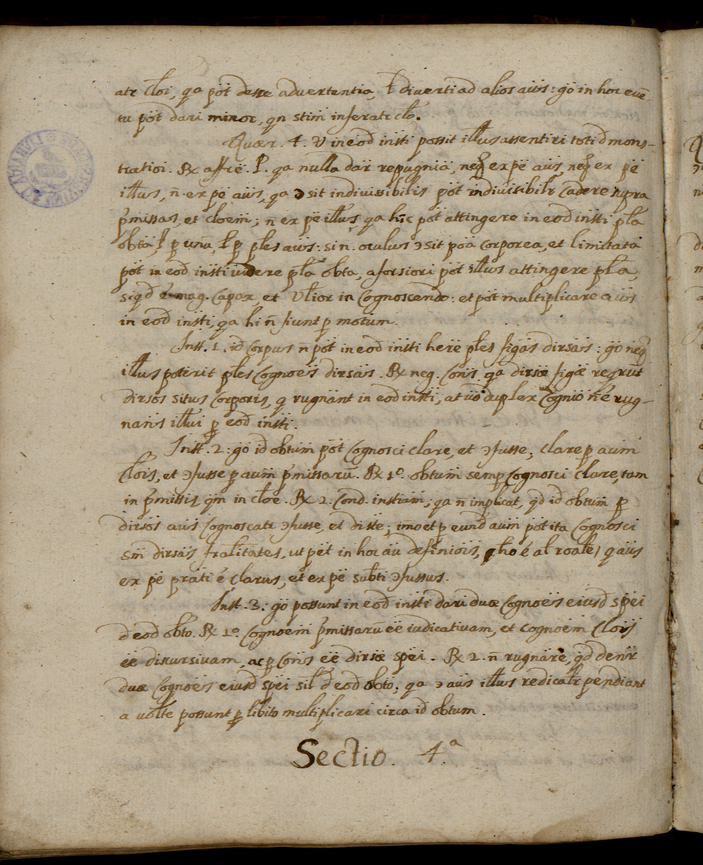 ate Cloi, qa pot deesse advertentia, l diverti ad alios aūs: go in hoc evē
tu pot dari minor, qn stim inferati clo.
Quær. 4. U in eod insti possit illus assentiri toti dmons-
trationi. Rx affve. P. qa nulla dar repugnia, neq ex pe aūs, neq ex pe
illus, n̄ ex pe aūs, qa sit indivissibilis pot indivisibilr Cadere supra
p̄missas, et cloem; n̄ ex pe illus, qa hic pot attingere in eod insti pla
obta, l p una, l p ples aūs: sin. oculus sit poa corporea, et limitata
pot in eod insti videre pla obta, a forsiori pot illus attingere pla,
siqd e mag. Capax, et Ulior in Cognoscendo: et pot multiplicare aūs
in eod insti, qa hi n̄ fiunt p motum.
Inst. 1. id Corpus n̄ pot in eod insti here ples figas dirsas: go neq
illus poterit ples Cognoes dirsas. Rx neg. Cons. qa dirsæ figæ
dirsos situs Corporis, q rugnant in eod insti, at vo duplex Cognio n̄ e rug-
nans illui p eod insti.
Inst. 2: go id obtum pot Cognosci clare, et fusse; clare p aum
Clois, et fusse p aum p̄missarū. Rx 1º. obtum semp Cognosci Clare, tam
in p̄missis, qm in cloe. Rx 2. Cond. instiam; qa n̄ implicat, qd id obtum p
dirsos aūs Cognoscatr fusse, et diste; imo et p eund aum pot ita Cognosci
sm dirsas fralitates, ut pet in hoc au definiois, ho é al roale, q aus
ex pe prati é Clarus, et ex pe subti fussus.
Inst. 3: go possunt in eod insti dari duæ Cognoes eiusd spei
d eod obto. Rx 1º. Cognoem p̄missarū eē iudicativam, et cognoem Clois
eē discursivam, ac p Cons eē dirsæ spei. Rx 2. n̄ rugnare, qd denr
duæ Cognoes eiusd spei sil d eod obto; qa aūs illus redicalr pendiant
a volte possunt p libito multiplicari circa id obtum.
Sectio. 4.ª